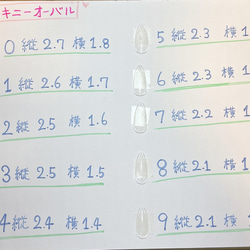 キニーオーバル
0 縦 2.7 横 1.8
1 縦 2.6 横 1.7
2 縦 2.5 横 1.6
3 縦 2.5 横 1.5
4 縦 2.4 横 1.4
5 縦 2.3 横 1
6 縦 2.3 横 1
7 縦 2.2 横 1
8 縦 2.1 横 1
9 縦 2.1 横